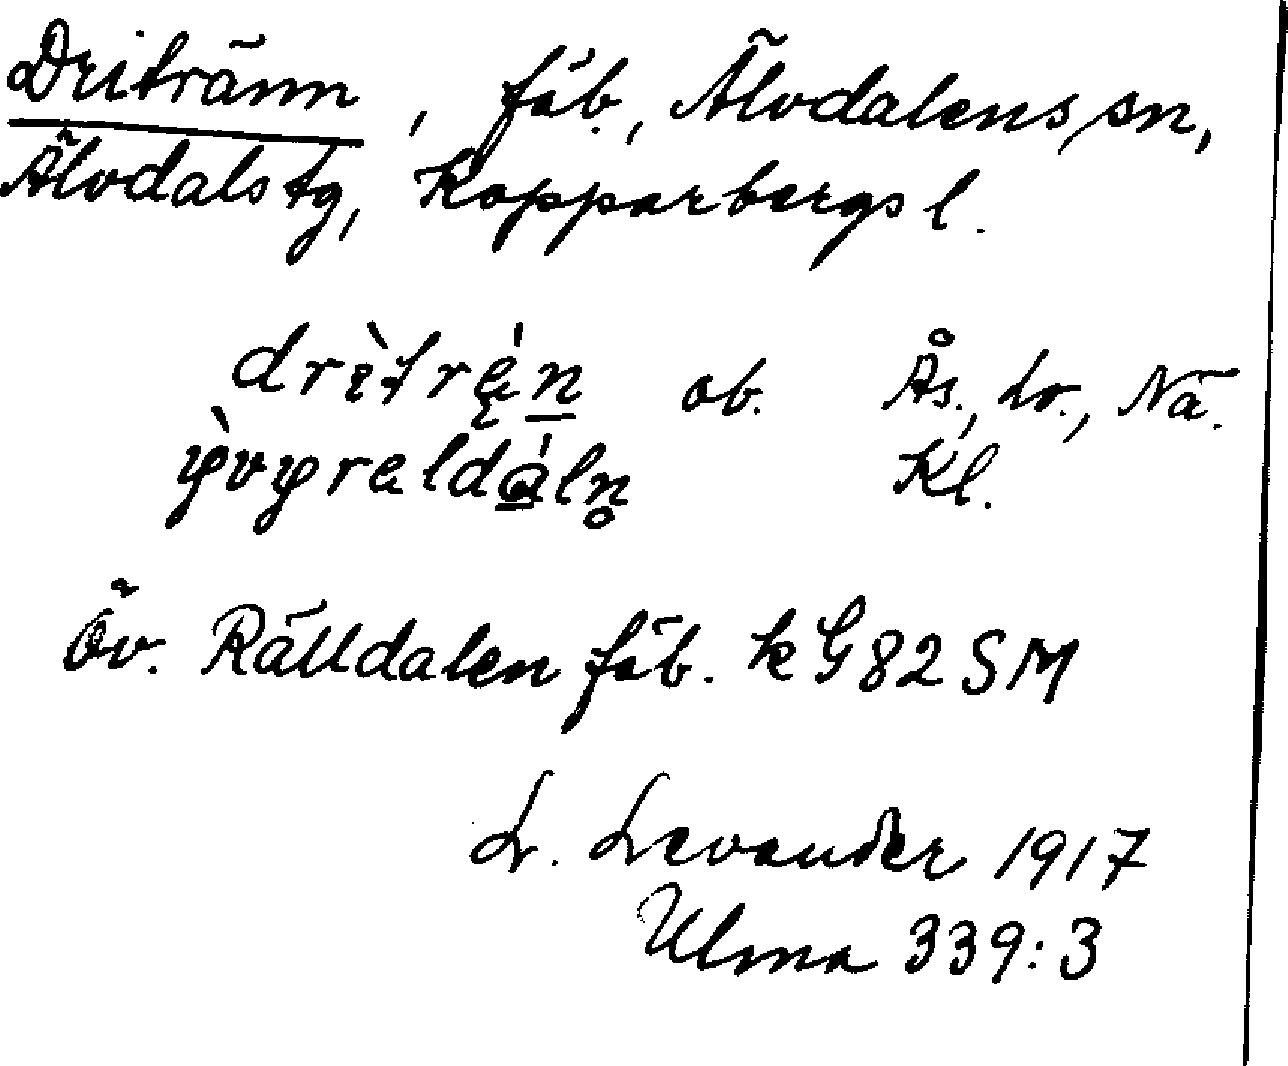 Dritränn, fäb., Älvdalens sn,
Älvdals tg, Kopparbergs l.
drìträ́n ob. Ås., Lo., Nä.
Kl.
Öv. Rälldalen fäb. kG82SM
L. Levander 1917
Ulma 339:3